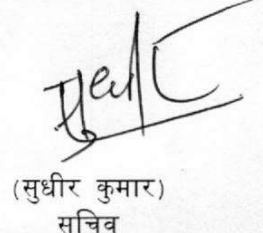 (सुधीर कुमार)
सचिव